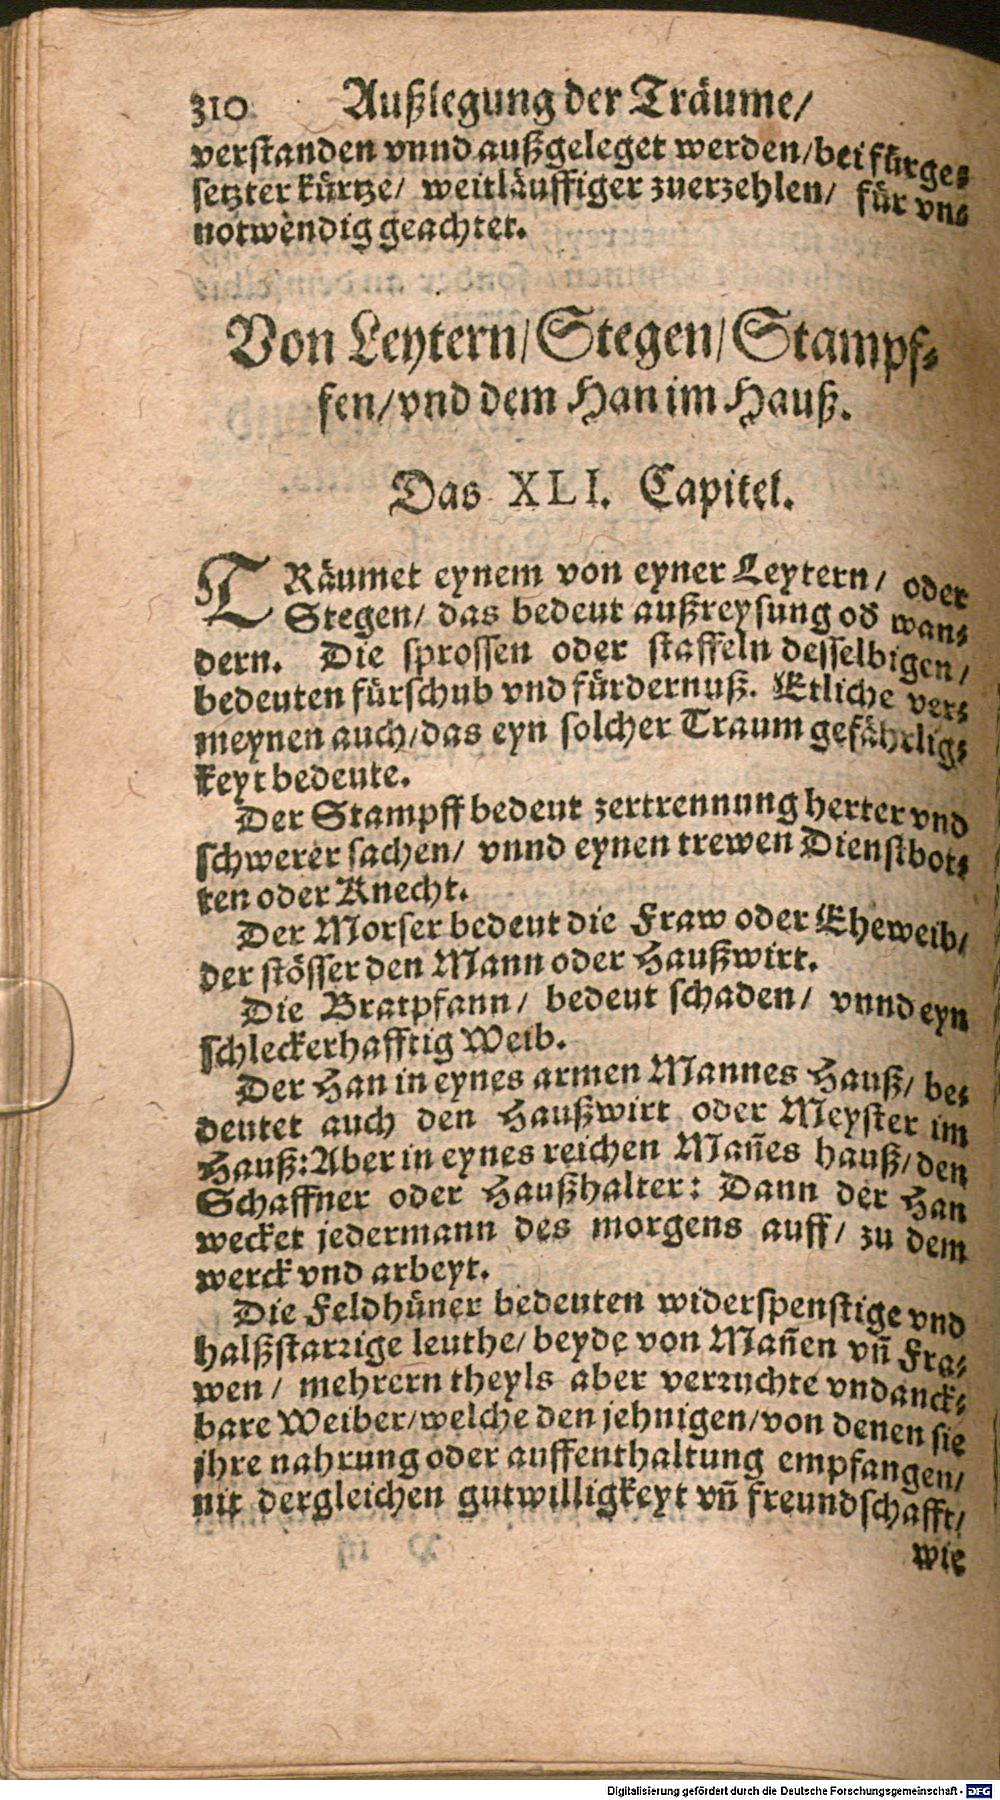 310 Außlegung der Träume/
verstanden vnnd außgeleget werden/bei fürge⸗
setzter kürtze/ weitläuffiger zuerzehlen/ für vn⸗
notwendig geachtet.
Von Leytern/Stegen/Stampf⸗
fen/vnd dem Han im Hauß.
Das XLI. Capitel.
TRäumet eynem von eyner Leytern/ oder
Stegen/ das bedeut außreysung od̕ wan⸗
dern. Die sprossen oder staffeln desselbigen/
bedeuten fürschub vnd fürdernuß. Etliche ver⸗
meynen auch/das eyn solcher Traum gefährlig⸗
keyt bedeute.
Der Stampff bedeut zertrennung herter vnd
schwerer sachen/ vnnd eynen trewen Dienstbot⸗
ten oder Knecht.
Der Morser bedeut die Fraw oder Eheweib/
der stösser den Mann oder Haußwirt.
Die Bratpfann/ bedeut schaden/ vnnd eyn
schleckerhafftig Weib.
Der Han in eynes armen Mannes Hauß/ be⸗
deutet auch den Haußwirt oder Meyster im
Hauß: Aber in eynes reichen Mañes hauß/ den
Schaffner oder Haußhalter: Dann der Han
wecket jedermann des morgens auff/ zu dem
werck vnd arbeyt.
Die Feldhüner bedeuten widerspenstige vnd
halßstarꝛige leuthe/ beyde von Mañen vñ Fra⸗
wen/ mehrern theyls aber verꝛuchte vndanck⸗
bare Weiber/welche den jehnigen/von denen sie
jhre nahrung oder auffenthaltung empfangen/
nit dergleichen gutwilligkeyt vñ freundschafft/
wie
Digitalisierung gefördert durch die Deutsche Forschungsgemeinschaft - DFG